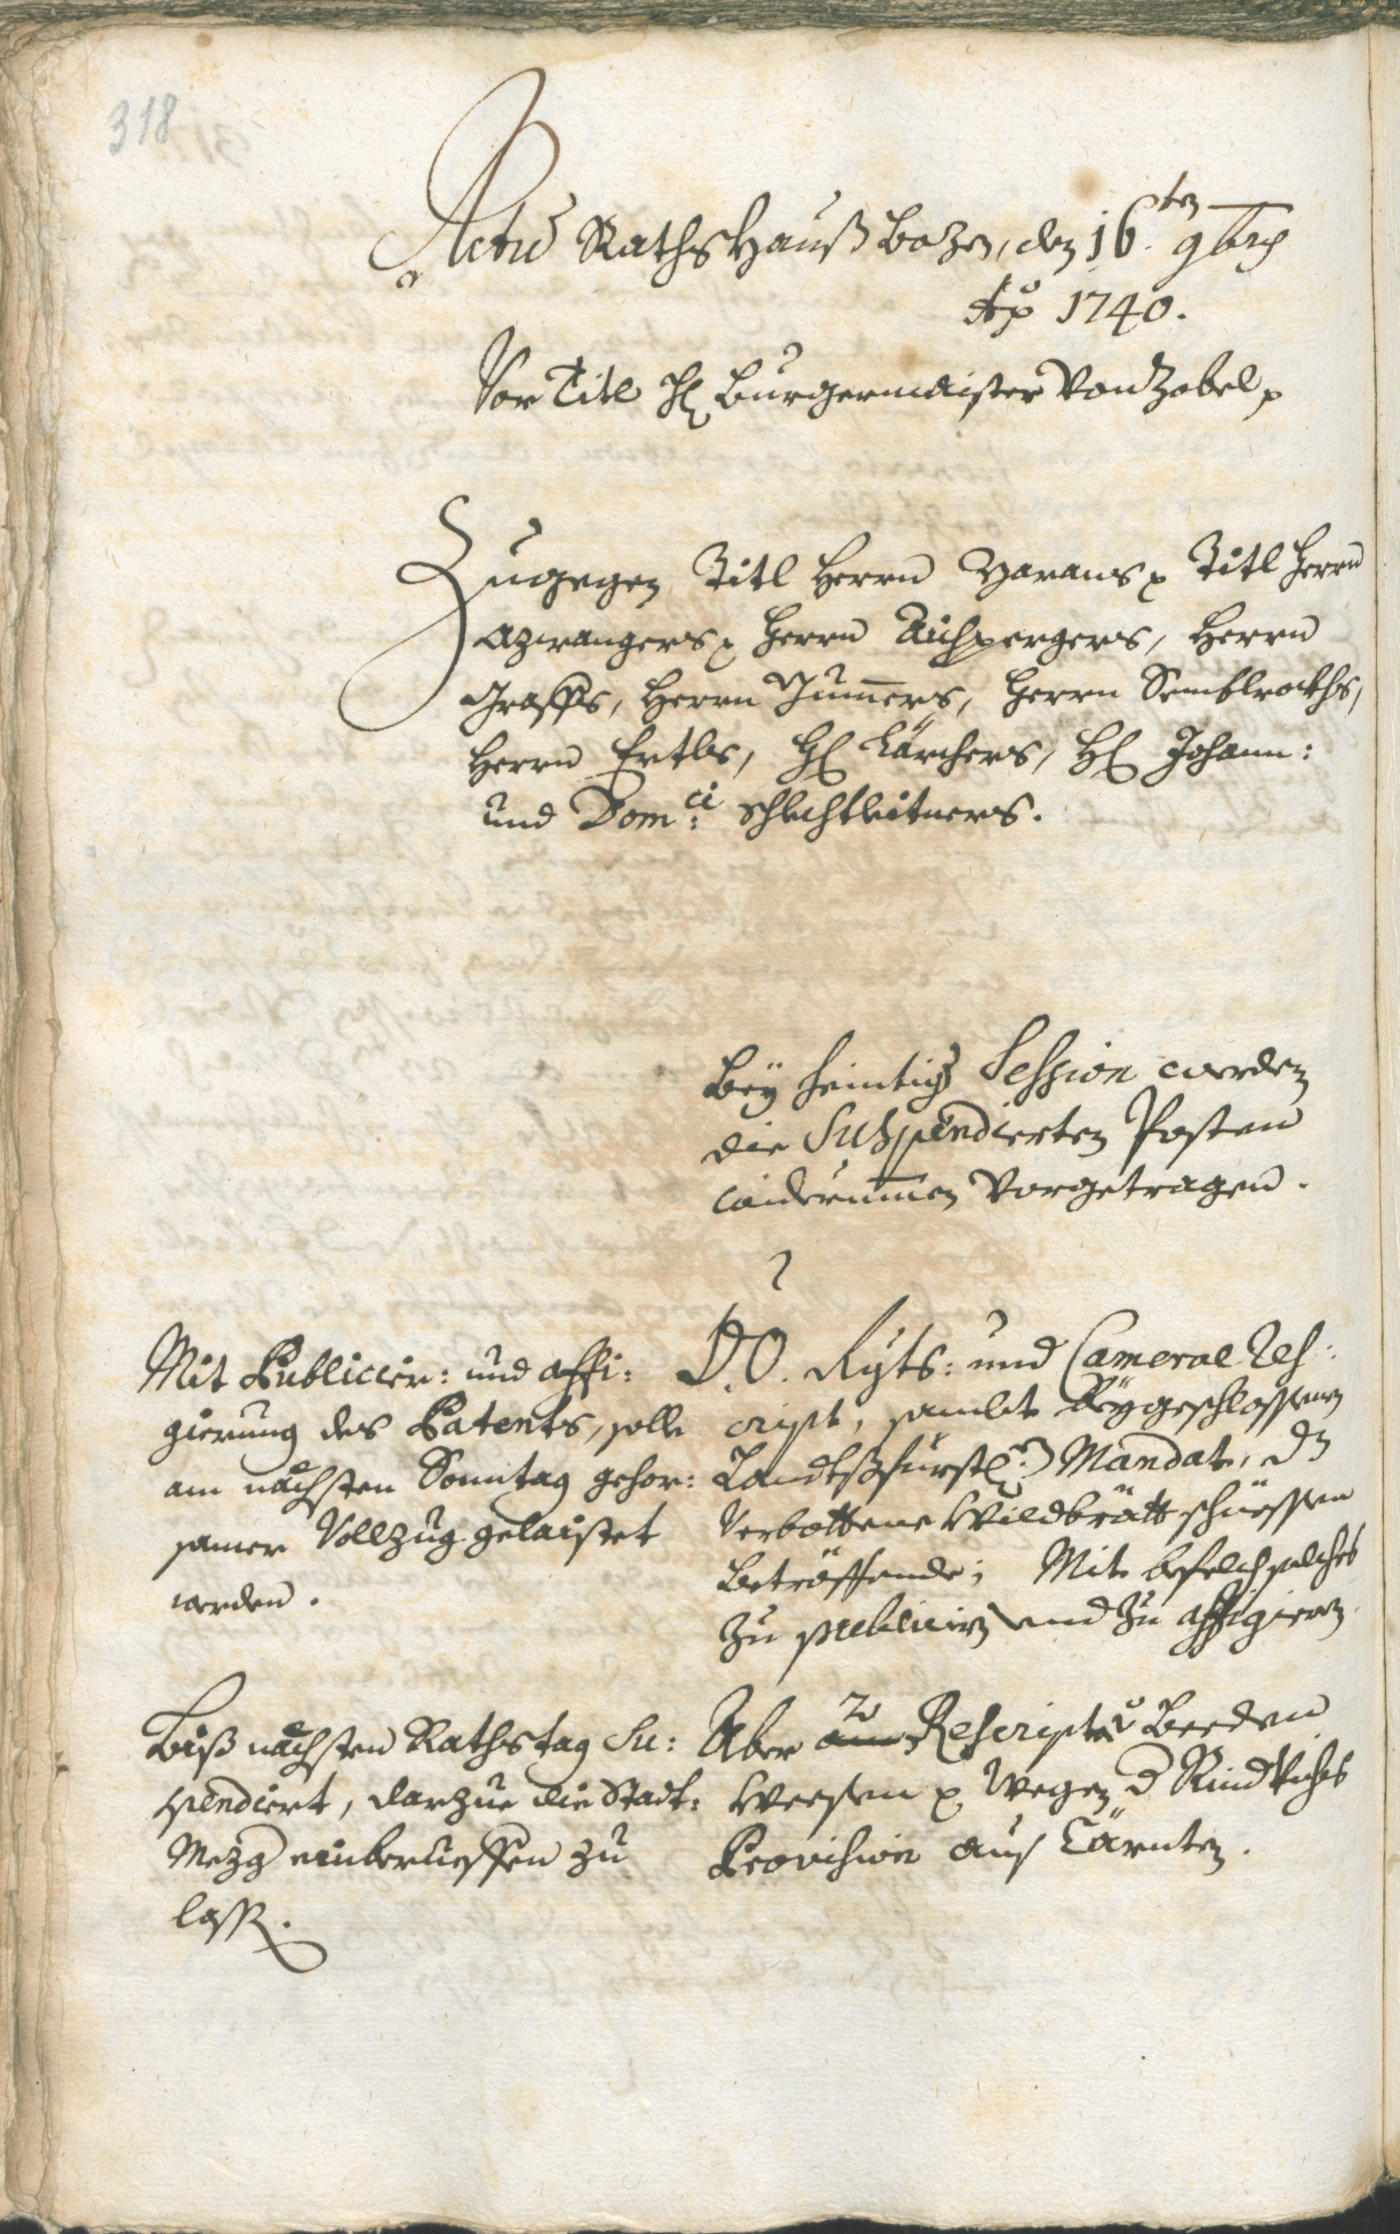 318
Actu Raths Hauß Bozen, den 16.ten 9bris
Ao 1740.
Vor Titl H Burgermaister Von Zobel p
Zugegen Titl Herrn Marans p Titl Herrn
Azwangers p Herrn Aichpergers, Herrn
Graffs, Herrn Herrn Semblroths,
Herrn Ertls, H Lärchers, H Johann:
und Dom:ci Schlechtleitners.
Bey heintig Session werden
die Suspendierten Posten
widerummen Vorgetragen.
Mit Publicier: und affi:
gierung des Patents, solle
am nächsten Sonntag gehor:
samer Vollzug gelaistet
werden.
O. Ö. Rgts: und Cameral Res:
cript, sambt Beygeschlossenen
Landtsfürstl Mandat, dz
Verbottene Wildbrätt schüessen
Betröffende; Mit befelch solches
zu publiciern und zu affigiern
Biß nächsten Rathstag Su:
spendiert, darzue die Stadt:
Mezg einberueffen zu
lassen.
Über 2 Rescripta Beeden
Weesen p Wegen d Rindtvichs
Provision aus Cärnten.